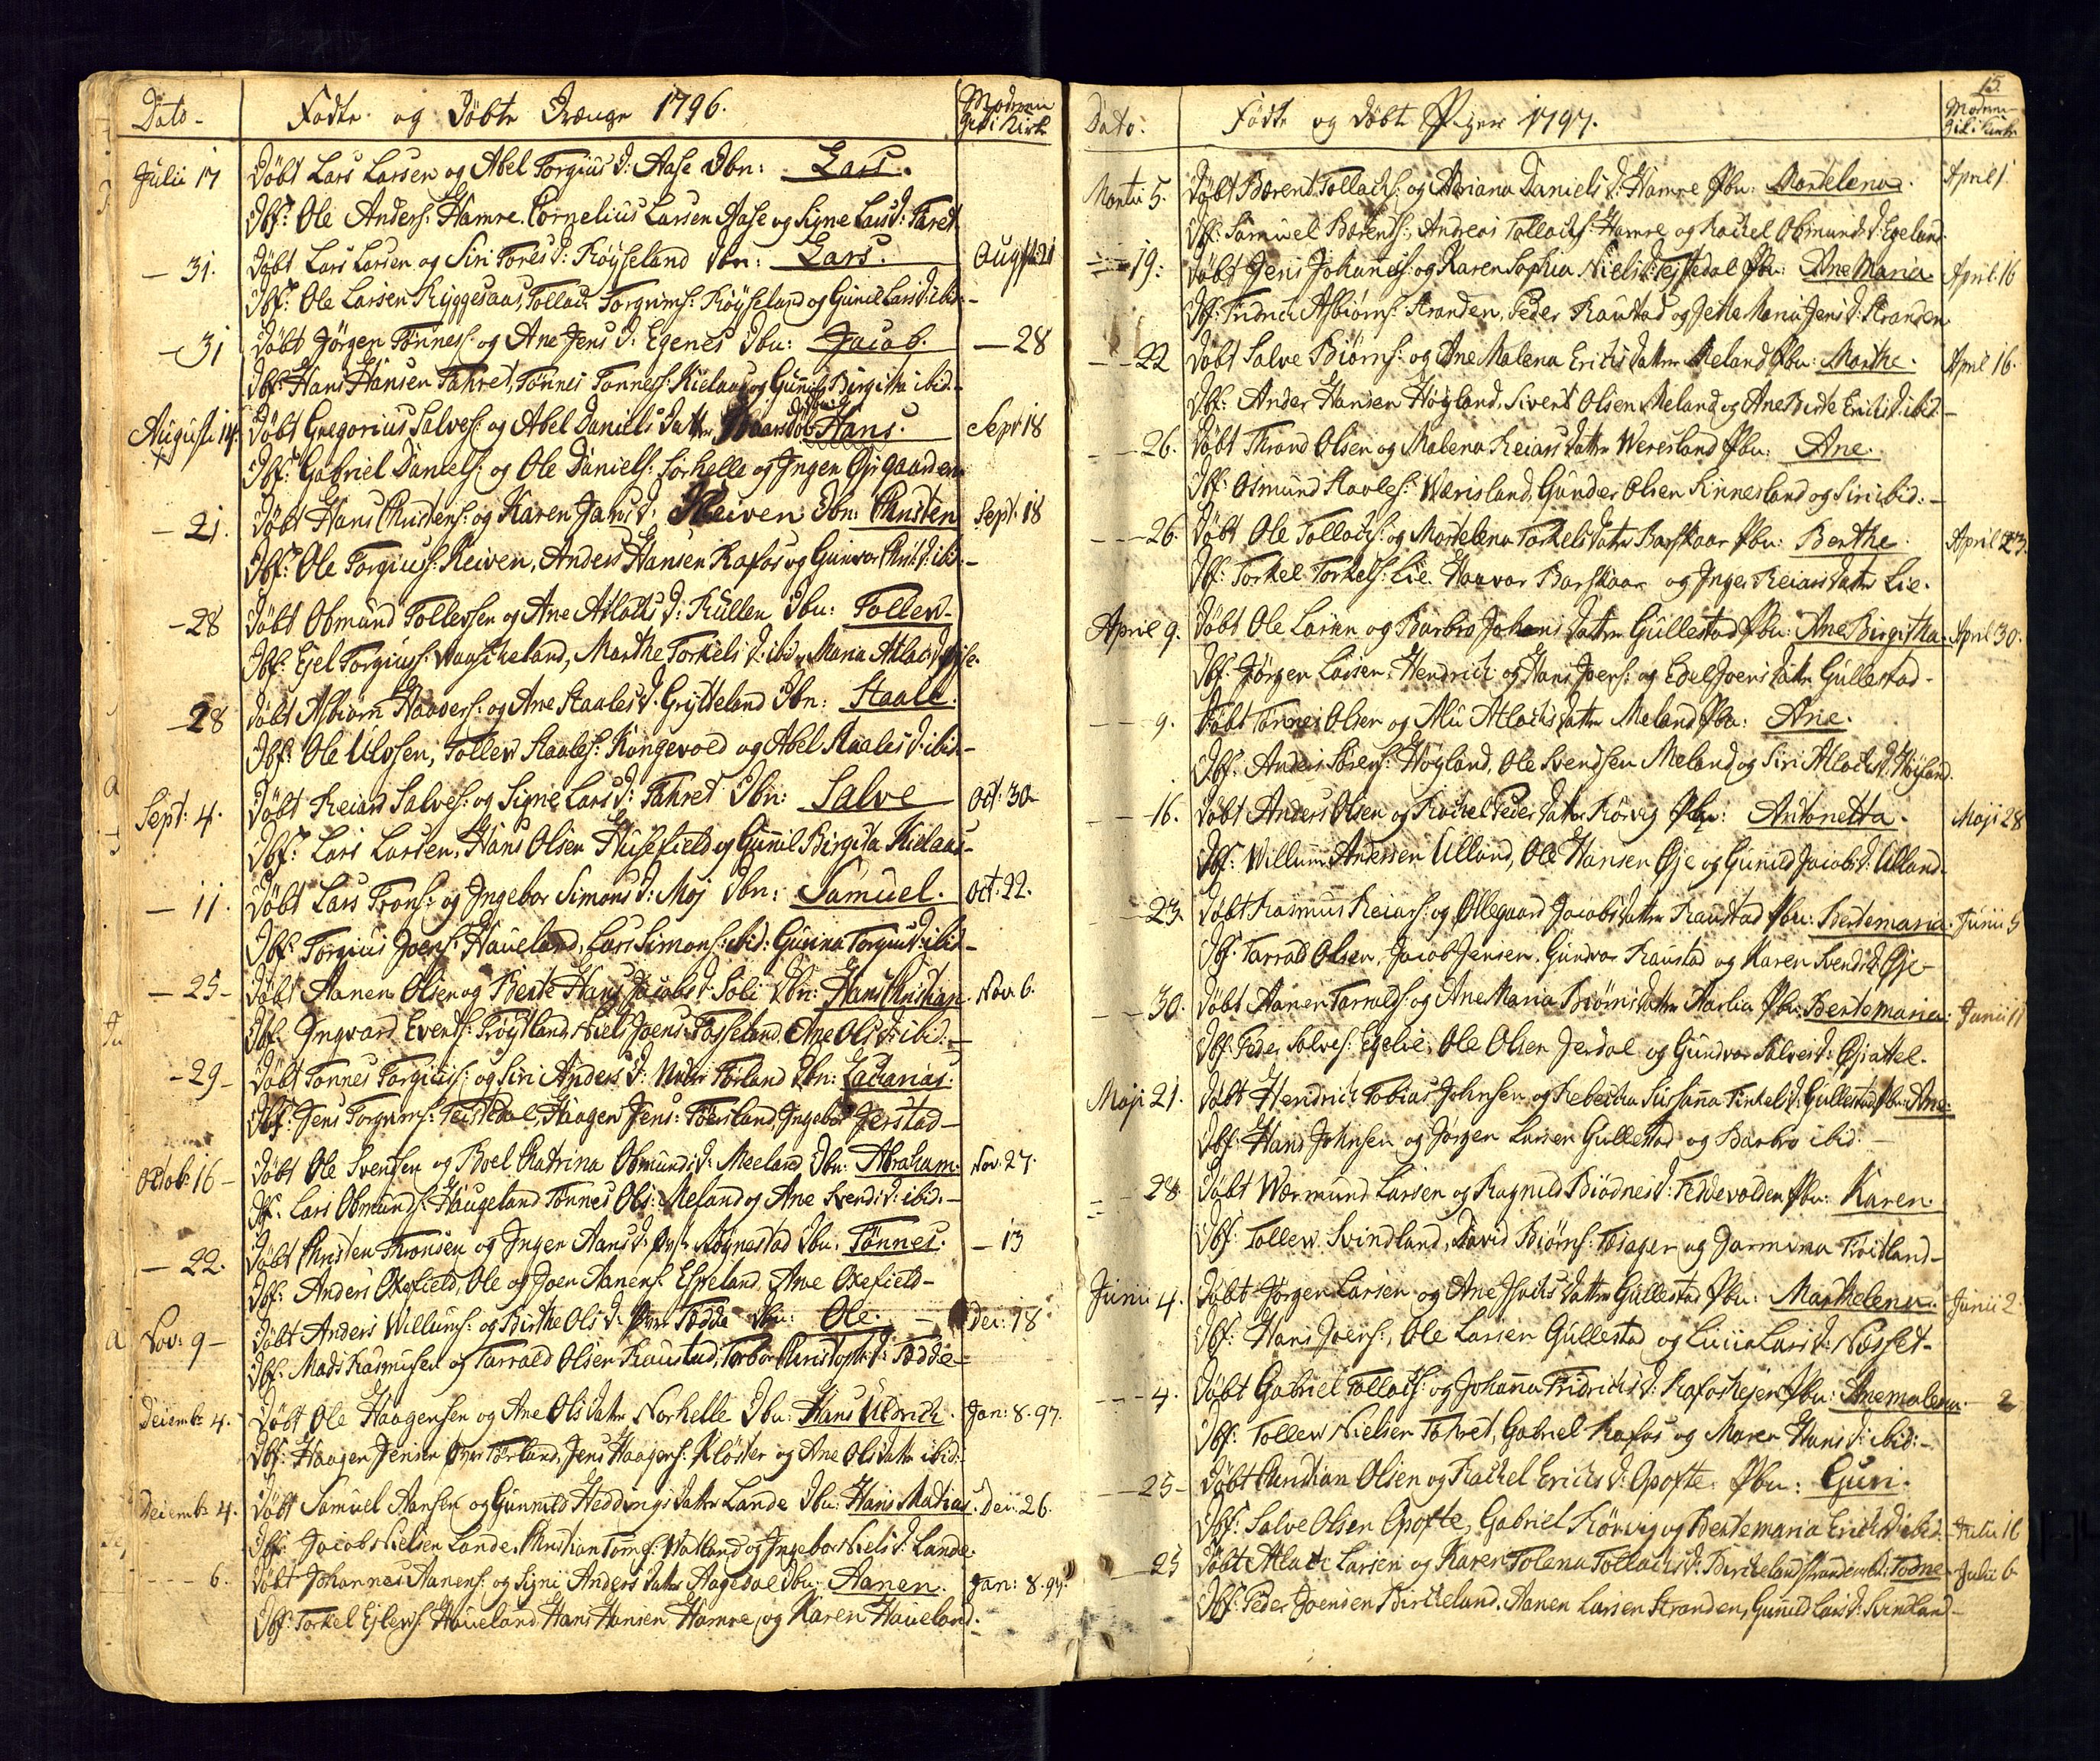 Dato-
Fødte og Døbte Drenge 1796.
Moderen
Gik i Kirke
Julii 17 Døbt Lars Larsen og Abel Torgius D: Aase Dbn: Lars.
Dbf: Ole Anders: Hamre. Cornelius Larsen Aase og Signe Lars D: Faret
- 31. Døbt Lars Larsen og Siri Tores D: Röyseland Dbn: Lars. Augst: 21
Dbf: Ole Larsen Ryggesaas, Tollach Torgrims: Röyseland og Gunild Lars D: ibid-
- 31 Døbt Jörgen Tönness: og Ane Jens D: Egenes Dbn: Jacob. - 28
Dbf: Hans Hansen Fahret, Tønnes Tønness: Kielaas og Gunild Birgitha ibid-
Augusti 14. Døbt Gregorius Salves: og Abel Daniels Datter Hans. Sept 18
Dbf: Gabriel Daniels: og Ole Daniels: Lorkelle og Ingen Gjsgaarden
- 21. Døbt Hans Christens: og Karen Jans D: Reiven Dbn: Christen Sept: 18
Dbf: Ole Torgius: Reiven, Anders Hansen Rafos og Gunvor Christ: D: ibid-
- 28 Døbt Obmund Tollevsen og Ane Atlachs D: Kullen Dbn: Tollev-
Dbf: Ejel Torgius: Waascheland, Marthe Torkels D: ibid, Maria Atlachs D:
- 28 Døbt Asbiörn Haavers: og Ane Staales D: Grytteland Dbn: Staale.
Dbf: Ole Ulvsen, Tollev Staales: Kongevold og Abel Staales D: ibid-
Sept: 4. Døbt Reiars Salves: og Signe Lars D: Fahret Dbn: Salve Oct: 30-
Dbf: Lars Larsen, Hans Olsen Husefield og Gunnil Birgita Kielaas-
- 11. Døbt Lars Trons: og Ingebor Simons D: Moj Dbn: Samuel. Oct: 22.
Dbf: Torgius Joens: Haueland, Lars Simons: ibid: Gurina Torgius D: ibid-
- 25- Døbt Aanen Olsen og Bente Hans Jacobs D: Soli Dbn: Hans Christian Nov: 6.
Dbf: Ingvard Events: Tröytland, Niels Joens: Fosseland. Ane Ols D: ibid:-
- 29- Døbt Tonnes Torgius: og Siri Anders D: Nedr Førland Dbn: Zacharias.
Dbf: Jens Torgrims: Teistedal, Haagen Jens: Foersland, Ingebor Jerstad-
Octob: 16- Døbt Ole Svendsen og Boel Catrina Obmunds D: Meeland Dbn: Abraham. Nov: 27.
Dbf: Lars Obmunds: Haugeland Tonnes Ols: Meland og Ane Svends D: ibid.-
- 22. Døbt Christen Thronsen og Inger Aans D: Røynestad Dbn: Tönnes. - 13
Dbf: Anders Oxefield, Ole og Joen Aanens: Espeland. Ane Oxefield-
Nov: 9- Døbt Anders Willums: og Birthe Ols D: Øvre Fedde Dbn: Ole.- Dec: 18
Dbf: Mads Rasmusen og Tarrald Olsen Raustad, Torbor Christophr: D: Fedde-
Decemb: 4. Døbt Ole Haagensen og Ane Ols Datter Norkelle Dbn: Hans Uldrich. Jan: 8. 97.
Dbf: Haagen Jensen Øvre Førland, Jens Haagens: Klöster og Ane Ols Datter ibid:
Decemb: 4. Døbt Samuel Aansen og Gunnild Heddings Datter Lande Dbn: Hans Matias. Dec: 26.
Dbf: Jacob Nielsen Lande. Christian Tönnes: Watland og Ingebor Niels D: Lande.
- - - 6. Døbt Johannes Aanens: og Signi Anders Datter Aagedal Dbn: Aanen. Jan: 8. 97.
Dbf: Torkel Ejlevs: Haueland Hans Hansen Hamre, og Karen Haueland.
15.
Dato.
Fødte og døbte Piger 1797.
Moderen
Gik i Kirke
Martii 5. Døbt Bærent Tollachs: og Adriana Daniels D: Hamre Pbn: Martelena. April 1.
Dbf: Samuel Bærents:, Andreas Tollachs: Hamre og Rachel Obmunds D: Egeland.
- - 19: Døbt Jens Johanes: og Karen Sophia Niels D: Tejstedal Pbn: Ane Maria. April: 16
Dbf: Fridrich Asbiörns: Stranden, Peder Raustad og Jette Maria Jens D: Stranden
- - 22 Døbt Salve Biörns: og Ane Malena Erichs Datter Meland Pbn: Marthe. April 16.
Dbf: Ander Hansen Höyland, Sivert Olsen Meland og Ane Birte Erichs D: ibid-
- - 26. Døbt Thrond Olsen og Malena Reiars Datter Weresland Pbn: Ane.
Dbf: Osmund Staales: Wærisland, Gunder Olsen Sinnesland og Siri ibid:-
- - 26. Døbt Ole Tollachs: og Martelena Torkels Datter Barskaar Pbn: Berthe. April 23.
Dbf: Torkel Torkels: Lie. Haavar Barskaar og Inger Reiars Datter Lie.
April 9. Døbt Ole Larsen og Barbro Johans Datter Gullestad Pbn: Ane Birgitha. April 30.
Dbf: Jörgen Larsen. Hendrich og Hans Joers: og Edel Joers Datter Gullestad-
- - 9. Døbt Tønnes Olsen og Alu Atlachs Datter Meland Pbn: Ane.
Dbf: Anders Sörens: Höyland, Ole Svendsen Meland og Siri Atlachs D: Höyland.
- - 16. Døbt Anders Olsen og Rachel Peder Datter Rörvig Pbn: Antonetta. Maji 28
Dbf: Willum Andersen Ulland, Ole Hansen Øje og Gunild Jacobs D: Ulland-
- 23. Døbt Rasmus Reiars: og Ollegaard Jacobs Datter Raustad Pbn: Bertemaria. Junii 5
Dbf: Tarrald Olsen, Jacob Jensen. Gundvor Raustad og Karen Svends D: Øje-
- - 30. Døbt Aanen Tarralds: og Ane Maria Biörns Datter Aarlia Pbn: Bertemaria. Junii 11
Dbf: Peder Salves: Egelie. Ole Olsen Jerdal og Gundvor Salves D:
Maji 21. Døbt Hendrich Tobias Johnsen og Rebecha Susanna Tinkels D: Gullestad Pbn: Ane.
Dbf: Hans Johnsen og Jörgen Larsen Gullestad og Barbro ibid-
- - 28. Døbt Wærmund Larsen og Ragnild Biödnes D: Feddevolden Pbn: Karen.
Dbf: Tollev Svindland, David Biörns: Tosager og Jarmina Tröitland-
Junii 4. Døbt Jörgen Larsen og Ane Isachs Datter Gullestad Pbn: Marthelena. Junii 2.
Dbf: Hans Joers:, Ole Larsen Gullestad og Lucia Lars D: Næsset-
- - 4. Døbt Gabriel Tollachs: og Johanna Fridrichs D: Rafoshejen Pbn: Anemalena. - 2
Dbf: Tollev Nielsen Fahret, Gabriel Rafos og Maren Hans D: ibid:-
- - 25- Døbt Christian Olsen og Rachel Erichs D: Opofte. Pbn: Guri.
Dbf: Salve Olsen Opofte, Gabriel Rörvig og Bertemaria Erichs D: ibid. Julii 16
- 25 Døbt Atlach Larsen og Karen Tolena Tollachs D: Birckelandstranden Pbn: Todne. Julii 6
Dbf: Peder Joensen Birckeland, Aanen Larsen Stranden, Gunild Lars D: Svindland-